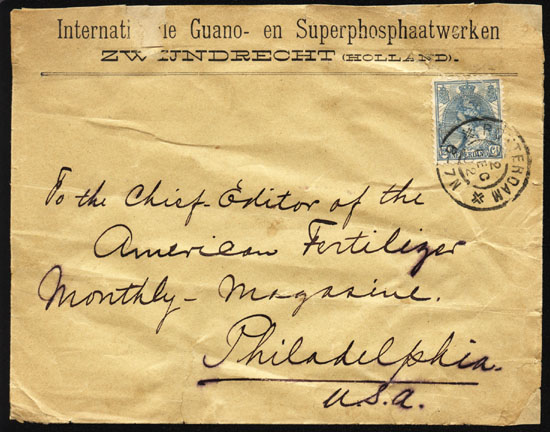 Internati ie Guano- en Superphosphaatwerken
ZW IJNDRECHT (HOLLAND).
To the Chief-Editor of the
American Fertilizer
Monthly-Magasine.
Philadelphia.
U.S.A.